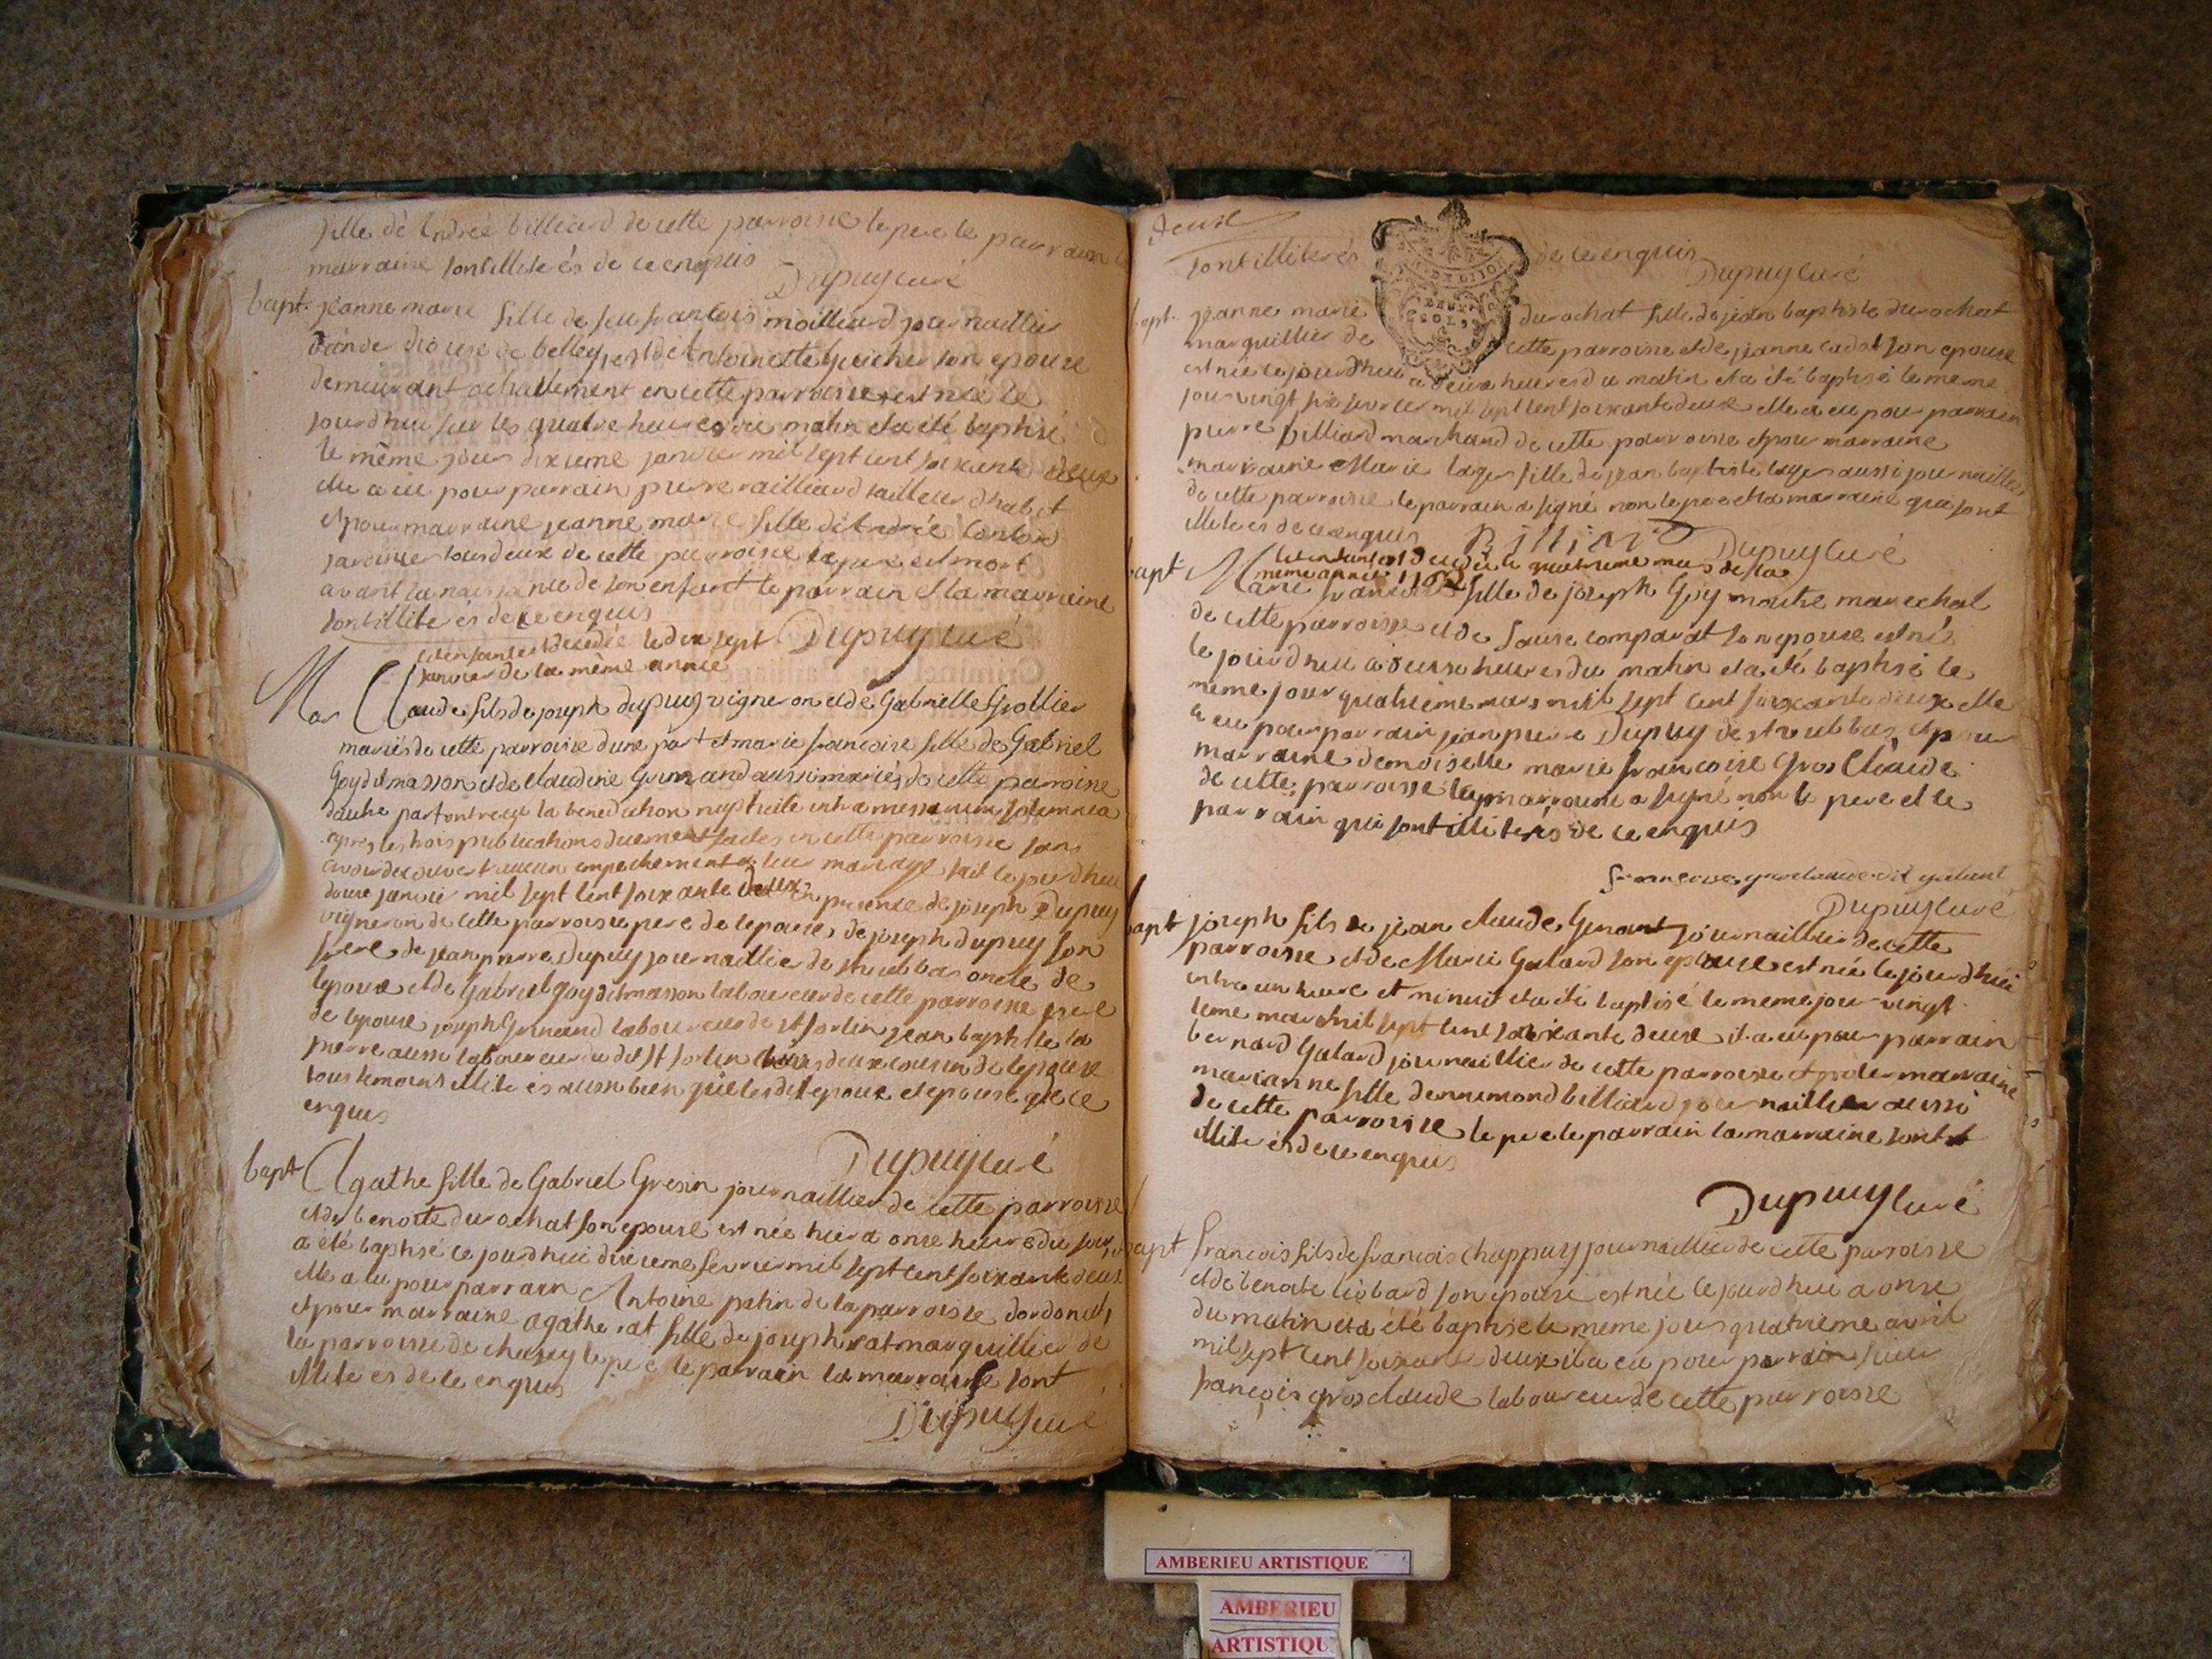 fille de Andrée billiard de cette parroisse le pere le parrain
marraine sont illiterés de ce enquis
Dupuy curé
bapt. jeanne marie fille de feu francois moilliard journallier
diocese de belley, et de Antoinette son epouse
demeurant achallement en cette parroisse est née le
jourdhui sur les quatre heures du matin et a été baptisé
le même jour dixieme janvier mil sept cent soixante deux
elle a eu pour parrain pierre railliard tailleur dhabit
et pour marraine jeanne marie fille de Andrée
tous deux de cette parroisse le pere est mort
avant la naissance de son enfant le parrain et la marraine
sont illiterés de ce enquis
Dupuy curé
cet enfant est decedée le dix sept
janvier de la même année
Mar Claude fils de joseph dupuy vigneron et de Gabrielle Grollier
mariés de cette parroisse dune part et marie francoise fille de Gabriel
Goy dit masson et de Claudine Grimand aussi mariés de cette parroisse
dautre part ont reçu la benediction nuptiale intra missarum solemnia
apres les trois publications duement faites en cette parroisse sans
avoir decouvert aucun empechement a leur mariage fait le jourdhui
douze janvier mil sept cent soixante deux en presence de joseph Dupuy
vigneron de cette parroisse pere de lepoux, de joseph dupuy son
frere de jean pierre Dupuy journaillier de oncle de
lepoux et de Gabriel goy dit masson laboureur de cette parroisse pere
de lepouse joseph Grimand laboureur de st sorlin jean baptiste la
pierre aussi laboureur du dit st sorlin tous deux cousin de lepouse
tous temoins illiterés aussi bien que lesdit epoux et epouse de ce
enquis
Dupuy curé
bapt Agathe fille de Gabriel Gresin journaillier de cette parroisse
et de benoite durochat son epouse est née hier a onse heures du soir,
a été baptisé le jourdhui dixieme fevrier mil sept cent soixante deux
elle a eu pour parrain Antoine patin de la parroisse dordonas
et pour marraine agathe rat fille de joseph rat marguillier de
la parroisse de chasey le pere le parrain la marraine sont
illiterés de ce enquis
Dupuy curé
deuse
sont illiterés de ce enquis
Dupuy curé
DE DIJON
DEUX
SOLS
bapt. jeanne marie durochat fille de jean baptiste durochat
marguillier de cette parroisse et de jeanne cadot son epouse
est née le jourdhui a deux heures du matin et a été baptisé le meme
jour vingt six fevrier mil sept cent soixante deux elle a eu pour parrain
pierre billiard marchand de cette parroisse et pour marraine
marraine Marie lager fille de jean baptiste lager aussi journaillier
de cette parroisse le parrain a signé non le pere et la marraine qui sont
illiterés de ce enquis Billiard
Dupuy curé
cet enfant est decedée le quatrieme mars de la
même année 1762
bapt Marie francoise fille de joseph Goy maitre marechal
de cette parroisse et de comparat son epouse est née
le jourdhui a onse heures du matin et a été baptisé le
meme jour quatrieme mars mil sept cent soixante deux elle
a eu pour parrain jean pierre Dupuy de et pour
marraine demoiselle marie francoise Gros Claude
de cette parroisse la marraine a signé non le pere et le
parrain qui sont illiterés de ce enquis
Dupuy curé
bapt joseph fils de jean claude Genant journaillier de cette
parroisse et de Marie Galard son epouse est née le jourdhui
entre un heure et minuit et a été baptisé le meme jour vingt
ieme mars mil sept cent soixante deuse il a eu pour parrain
bernard Galard journaillier de cette parroisse et pour marraine
marianne fille dennemond billiard journaillier aussi
de cette parroisse le pere le parrain la marraine sont
illiterés de ce enquis
Dupuy curé
bapt francois fils de francois chappuy journaillier de cette parroisse
et de benoite liobard son epouse est née le jourdhui a onse
du matin et a été baptisé le meme jour quatrieme avril
mil sept cent soixante deux il a eu pour parrain sieur
françois gros claude laboureur de cette parroisse
AMBERIEU ARTISTIQUE
AMBERIEU
ARTISTIQU